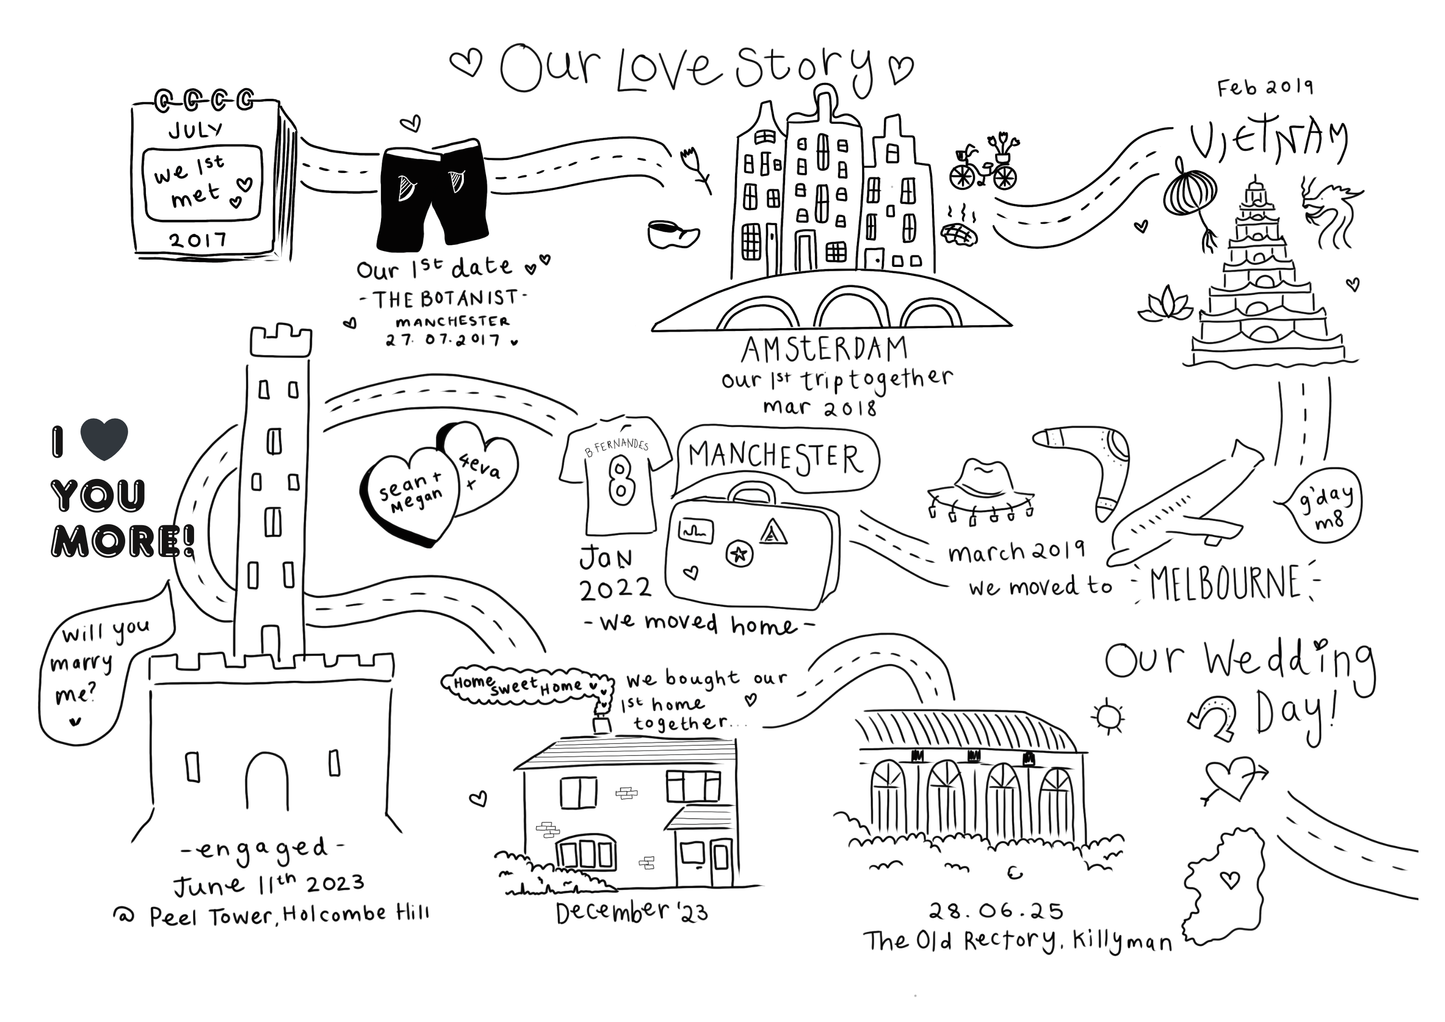 Our Love Story
JULY
we 1st
met
2017
Our 1st date
- THE BOTANIST -
MANCHESTER
27.07.2017
AMSTERDAM
our 1st trip together
mar 2018
Feb 2019
VIETNAM
g'day
m8
march 2019
we moved to
MELBOURNE
MANCHESTER
B FERNANDES
8
JAN
2022
- we moved home -
sean +
Megan
4eva
+
I ♥
YOU
MORE!
will you
marry
me?
- engaged -
June 11th 2023
@ Peel Tower, Holcombe Hill
Home Sweet Home
we bought our
1st home
together...
December '23
Our Wedding
Day!
28.06.25
The Old Rectory, Killyman